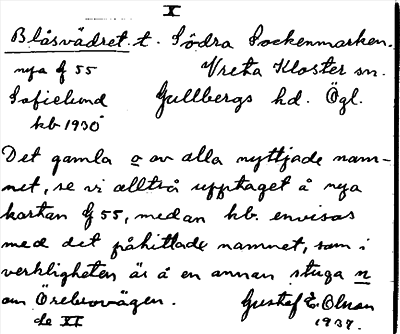 X
Blåsvädret. t. Södra Sockenmarken.
nya f 55 Vreta Kloster sn.
Sofielund Gullbergs hd. Ögl.
kb 1930
Det gamla o av alla nyttjade nam-
net, se vi alltså upptaget å nya
kartan f 55, medan kb. envisas
med det påhittade namnet, som i
verkligheten är å en annan stuga n
om Örebrovägen. Gustaf E. Olsson
de XI 1937.